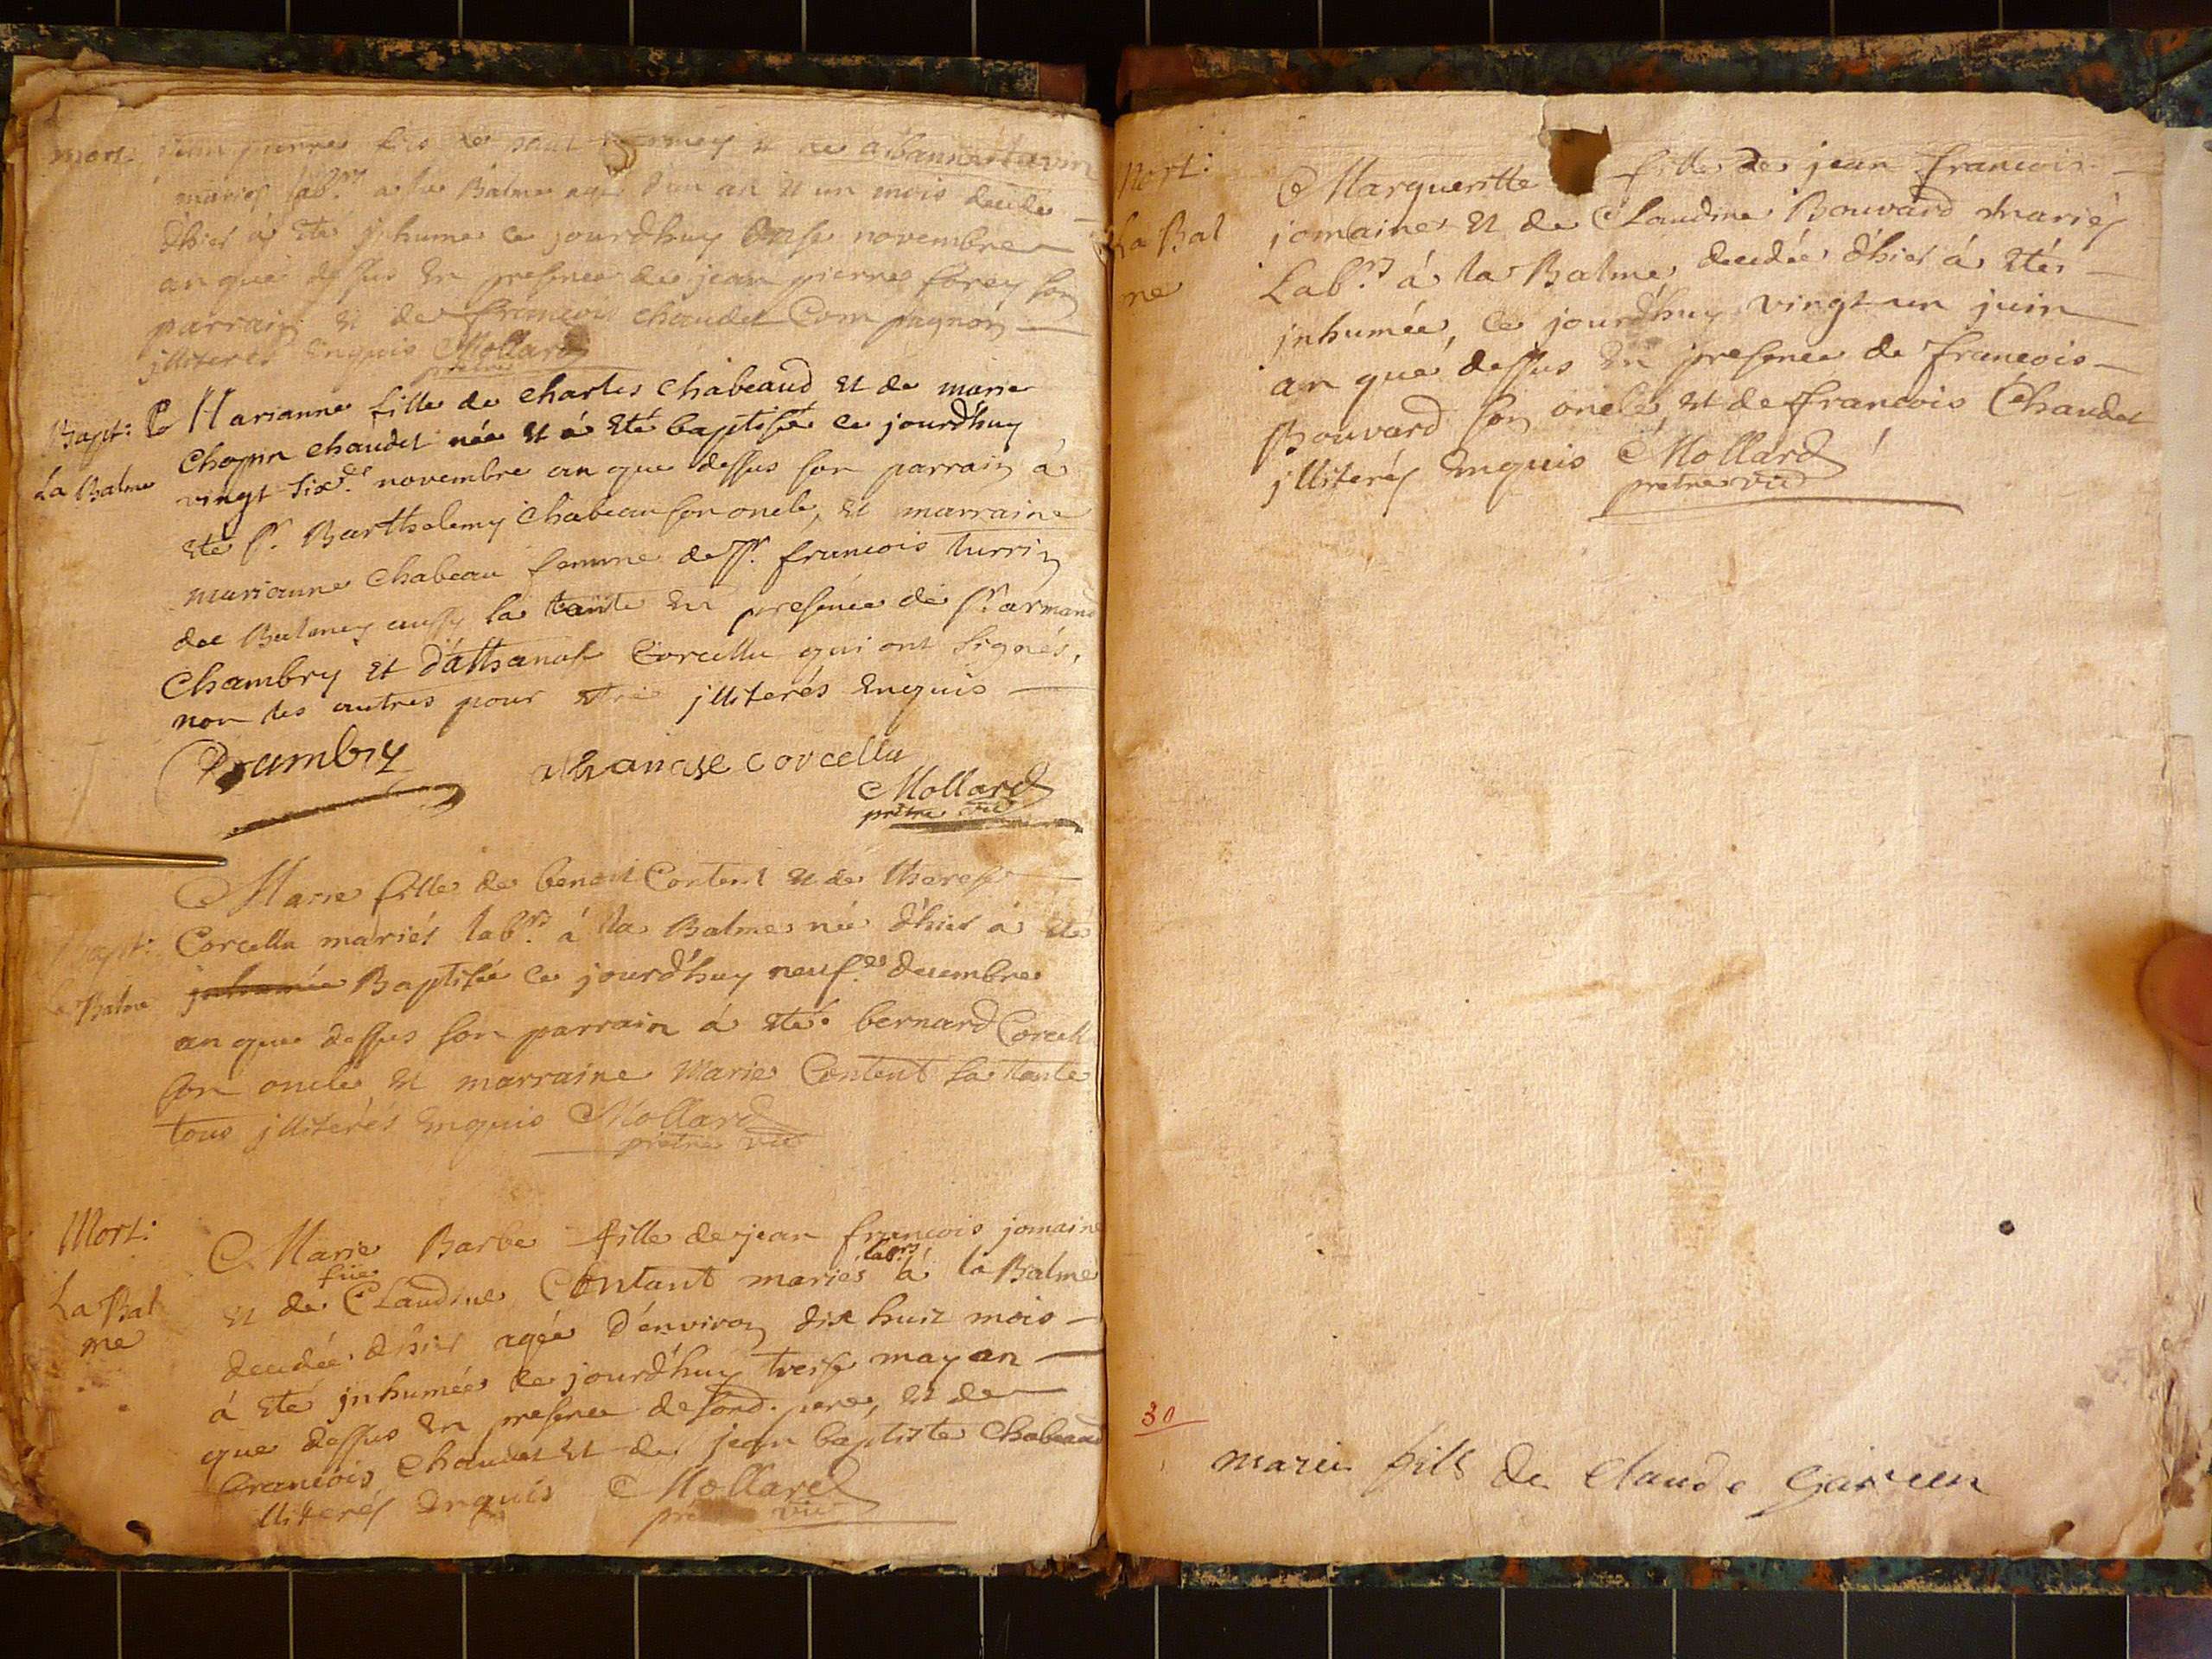 mort: jean pierre fils de
mariés lab.rs à la Balme agé d'un an et un mois decedé
d'hier à eté jnhumé ce jourd'huy onse novembre
an que dessus en presence de jean pierre forey son
parrain et de francois chaudet Compagnon
jlliterés enquis Mollard
prêtre
Bapt: Marianne fille de charles chabeaud et de marie
La Balme
Chapon chaudet née et à eté baptisée ce jourd'huy
vingt six.e novembre an que dessus son parrain à
eté s.r Barthelemy chabeau son oncle, et marraine
marianne chabeau femme de s.r francois turrin
de aussy sa tante en presence de s.r armand
Chambry et d'athanase Corcellu qui ont signés,
non les autres pour etre jlliterés enquis
Chambry athanase corcellu
Mollard
prêtre vic
Marie fille de benoit Content et de therese
Bapt: Corcellu mariés lab.rs à la Balme née d'hier à eté
La Balme jnhumée Baptisée ce jourd'huy neuf.e decembre
an que dessus son parrain à eté bernard Corcell
son oncle et marraine Marie Content sa tante
tous jlliterés enquis Mollard
prêtre vic
Mort:
Marie Barbe fille de jean francois jomain
La Bal
me
et de füe Claudine Contant mariés lab.rs à la Balme
decedée d'hier agée d'environ dix huit mois
à eté jnhumée ce jourd'huy treise may an
que dessus en presence de sond. pere, et de
francois chaudet et de jean baptiste Chabeaud
jlliterés enquis Mollard
vic
Mort:
Margueritte fille de jean francois
La Bal
me
jomaine et de Claudine Bouvard mariés
Lab.rs à la Balme, decedée d'hier à eté
jnhumée, ce jourd'huy vingt un juin
an que dessus en presence de francois
Bouvard son oncle, et de francois Chaudet
jlliterés enquis Mollard
prêtre vic
30
marie fils de Claude